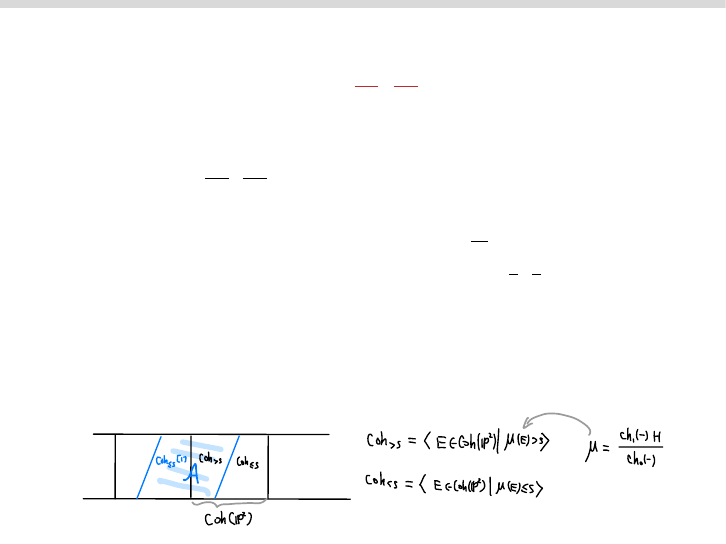 Coh≤s[1] Coh>s Coh≤s
A
Coh(ℙ²)
Coh>s = ⟨ E∈Coh(ℙ²) | μ(E)>s ⟩
μ = ch₁(-)·H / ch₀(-)
Coh≤s = ⟨ E∈Coh(ℙ²) | μ(E)≤s ⟩